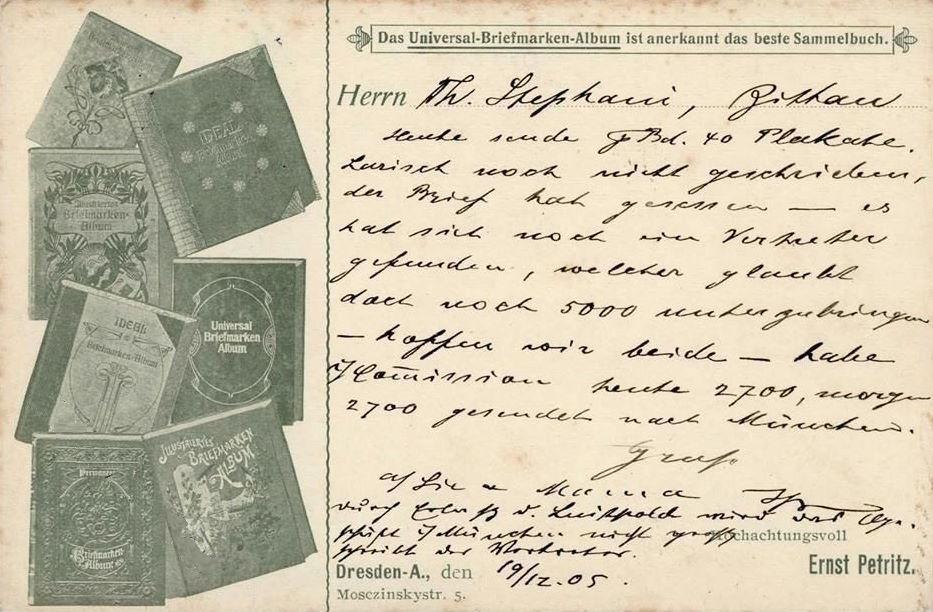 Das Universal-Briefmarken-Album ist anerkannt das beste Sammelbuch.
Herrn Th. Stephani, Zittau
Heute sende Bd. 40 Plakate.
Larisch noch nicht geschrieben,
der Brief hat gesessen — es
hat sich noch ein Vertreter
gefunden, welcher glaubt
dort noch 5000 unterzubringen
— hoffen wir beide — habe
i/Com̄ission heute 2700, morgen
2700 gesendet nach München.
Gruß
a/ Sie u Mama
durch v. Luitpold wird das
i/ München nicht
schreibt der Vertreter.
Hochachtungsvoll
Dresden-A., den 19/12.05.
Ernst Petritz.
Mosczinskystr. 5.
Illustriertes
Briefmarken-
Album
IDEAL
Briefmarken-
Album
IDEAL
Briefmarken-Album
Universal
Briefmarken
Album
Permanent
Briefmarken-
Album
ILLUSTRIERTES
BRIEFMARKEN
ALBUM